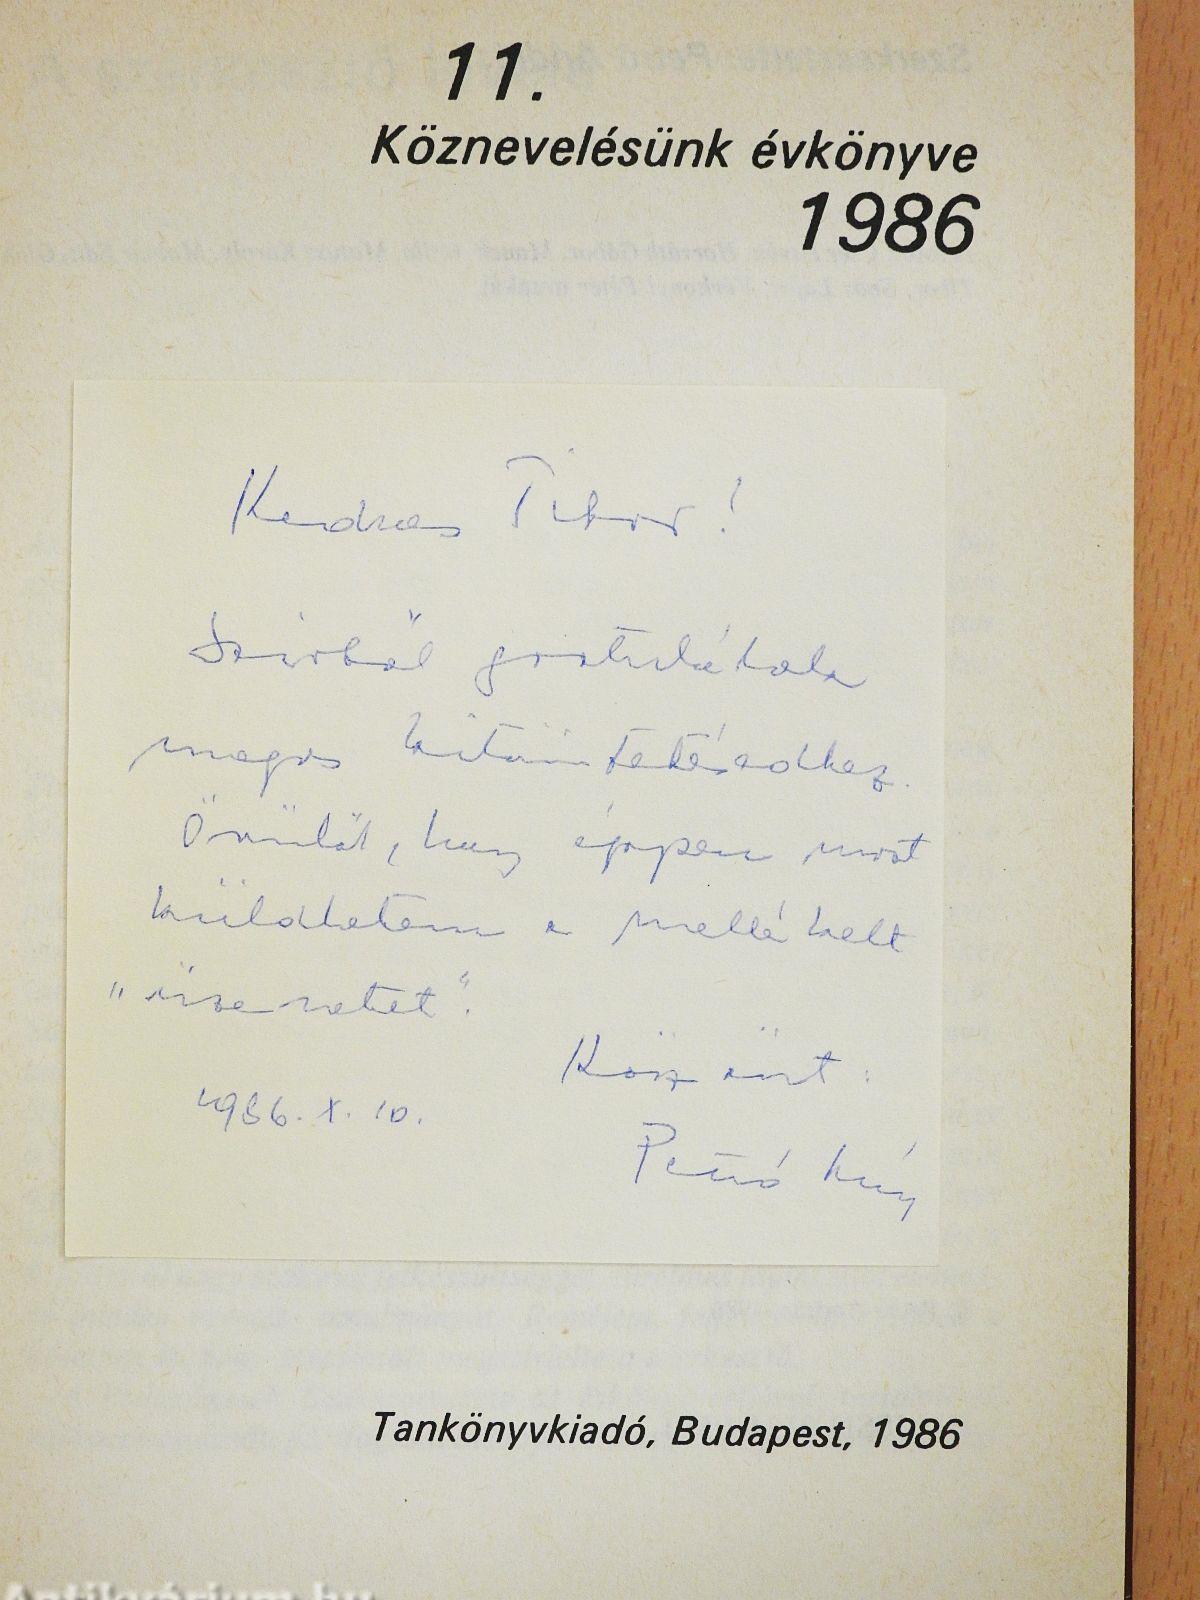 11.
Köznevelésünk évkönyve
1986
Kedves Tibor!
Szívből gratulálok
magas kitüntetésedhez.
Örülök, hogy éppen most
küldhetem a mellékelt
"üzenetet".
Köszönt:
1986. X. 10.
Petró
Tankönyvkiadó, Budapest, 1986
Antikvárium.hu